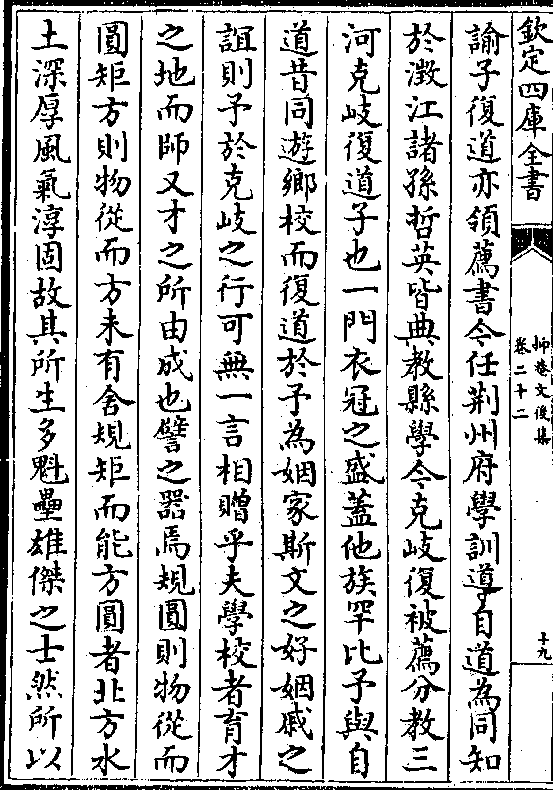 欽定四庫全書
抑菴文後集
卷二十二
十九
諭子復道亦領薦書今任荆州府學訓導自道為同知
於澂江諸孫哲英皆典教縣學今克岐復被薦分教三
河克岐復道子也一門衣冠之盛蓋他族罕比予與自
道昔同遊鄉校而復道於予為姻家斯文之好姻戚之
誼則予於克岐之行可無一言相贈乎夫學校者育才
之地而師又才之所由成也譬之器焉規圓則物從而
圓矩方則物從而方未有舍規矩而能方圓者北方水
土深厚風氣淳固故其所生多魁壘雄傑之士然所以